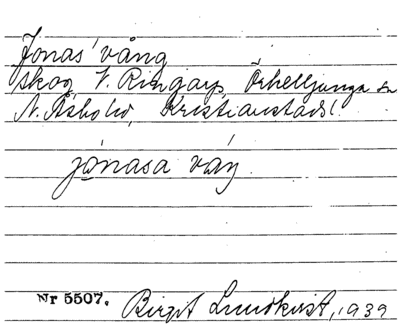 Jonas' vång
skog, V. Ringarp, Örkelljunga sn
N. Åsbo hd, Kristianstads l.
jònasa váŋ
Nr 5507. Birgit Lundkvist, 1939